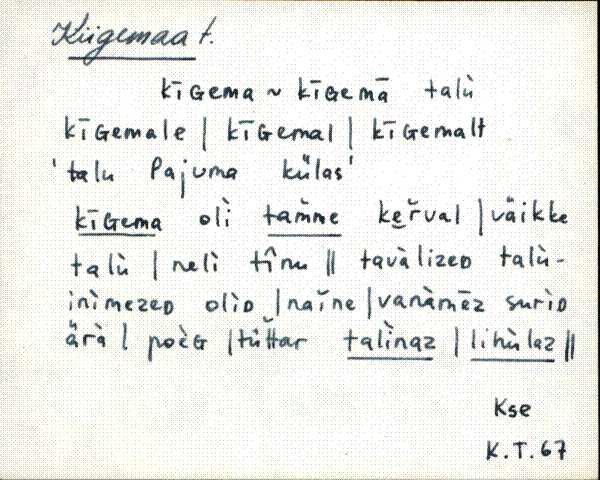 Kiigemaa t.
kīGema ~ kīGemā talù
kīGemale | kīGemal | kīGemalt
'talu Pajuma külas'
kīGema olì tam̀me ker̆val | väikke
talù | nelì tînu || tavàlizeD talù-
inìmezeD olìD | naĭne | vanàmēz surìD
ärà | poèG | tüt̆tar talìnaz | lihùlaz ||
Kse
K.T. 67